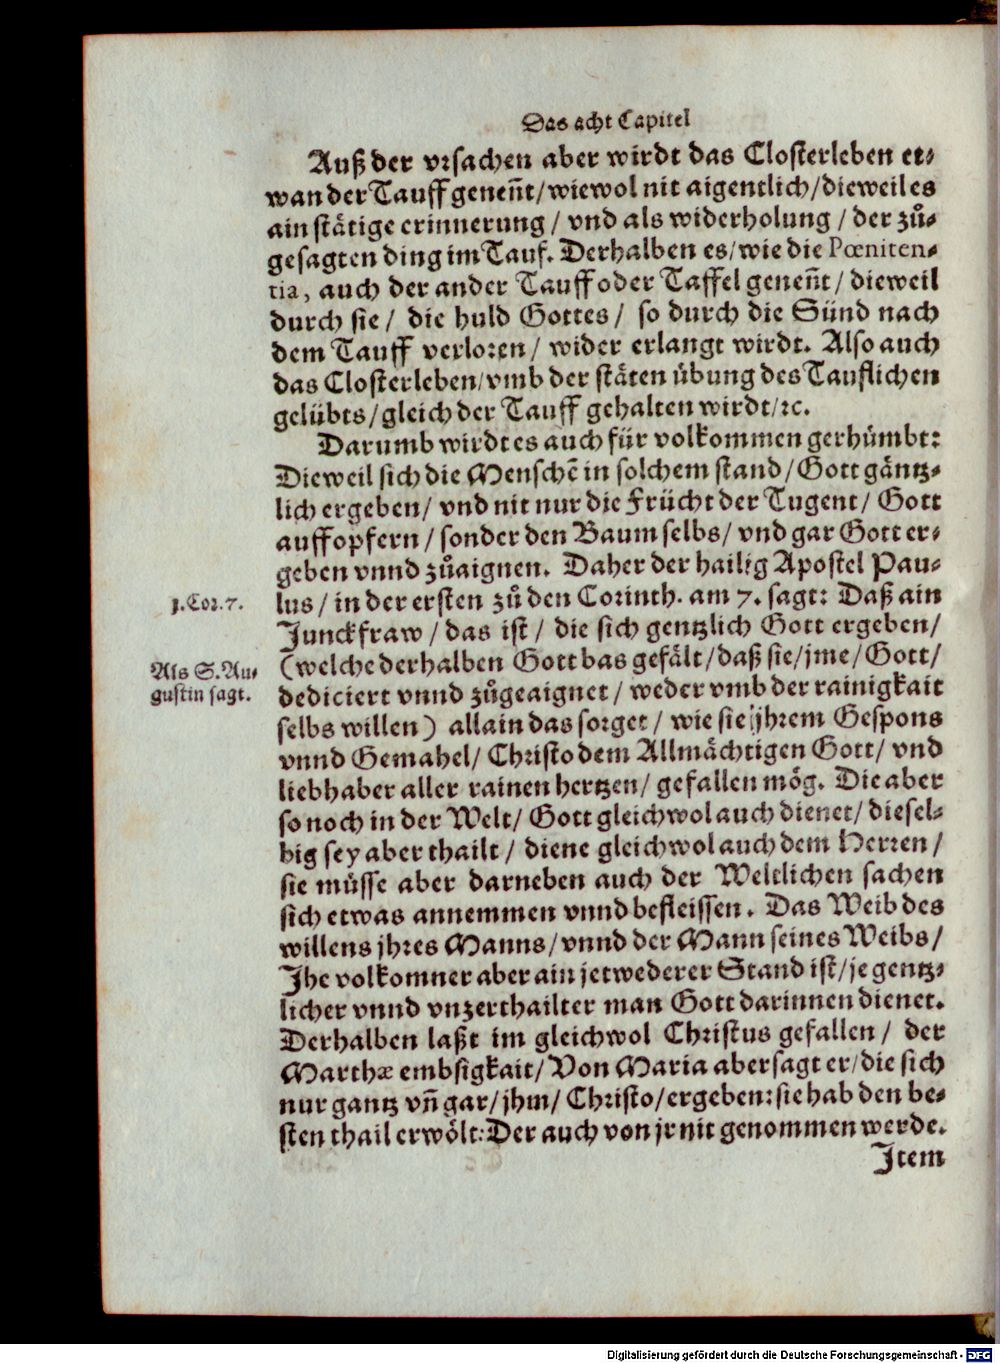 Das acht Capitel
Auß der vrsachen aber wirdt das Closterleben et⸗
wan der Tauff geneñt/ wiewol nit aigentlich/ dieweil es
ain stätige erinnerung/ vnd als widerholung/ der zů⸗
gesagten ding im Tauf. Derhalben es/ wie die Pœniten⸗
tia, auch der ander Tauff oder Taffel geneñt/ dieweil
durch sie/ die huld Gottes/ so durch die Sünd nach
dem Tauff verloren/ wider erlangt wirdt. Also auch
das Closterleben/ vmb der stäten übung des Tauflichen
gelübts/ gleich der Tauff gehalten wirdt/ ꝛc.
Darumb wirdt es auch für volkommen gerhümbt:
Dieweil sich die Menschẽ in solchem stand/ Gott gäntz⸗
lich ergeben/ vnd nit nur die Frücht der Tugent/ Gott
auffopfern/ sonder den Baum selbs/ vnd gar Gott er⸗
geben vnnd zůaignen. Daher der hailig Apostel Pau⸗
1. Cor. 7.
lus/ in der ersten zů den Corinth. am 7. sagt: Daß ain
Junckfraw/ das ist/ die sich gentzlich Gott ergeben/
Als S. Au⸗
gustin sagt.
(welche derhalben Gott bas gefält/ daß sie/ jme/ Gott/
dediciert vnnd zůgeaignet/ weder vmb der rainigkait
selbs willen) allain das sorget/ wie sie jhrem Gespons
vnnd Gemahel/ Christo dem Allmächtigen Gott/ vnd
liebhaber aller rainen hertzen/ gefallen mög. Die aber
so noch in der Welt/ Gott gleichwol auch dienet/ diesel⸗
big sey aber thailt/ diene gleichwol auch dem Herren/
sie müsse aber darneben auch der Weltlichen sachen
sich etwas annemmen vnnd befleissen. Das Weib des
willens jhres Manns/ vnnd der Mann seines Weibs/
Jhe volkomner aber ain jetwederer Stand ist/ je gentz⸗
licher vnnd vnzerthailter man Gott darinnen dienet.
Derhalben laßt im gleichwol Christus gefallen/ der
Marthæ embsigkait/ Von Maria aber sagt er/ die sich
nur gantz vñ gar/ jhm/ Christo/ ergeben: sie hab den be⸗
sten thail erwölt: Der auch von jr nit genommen werde.
Item
Digitalisierung gefördert durch die Deutsche Forschungsgemeinschaft - DFG